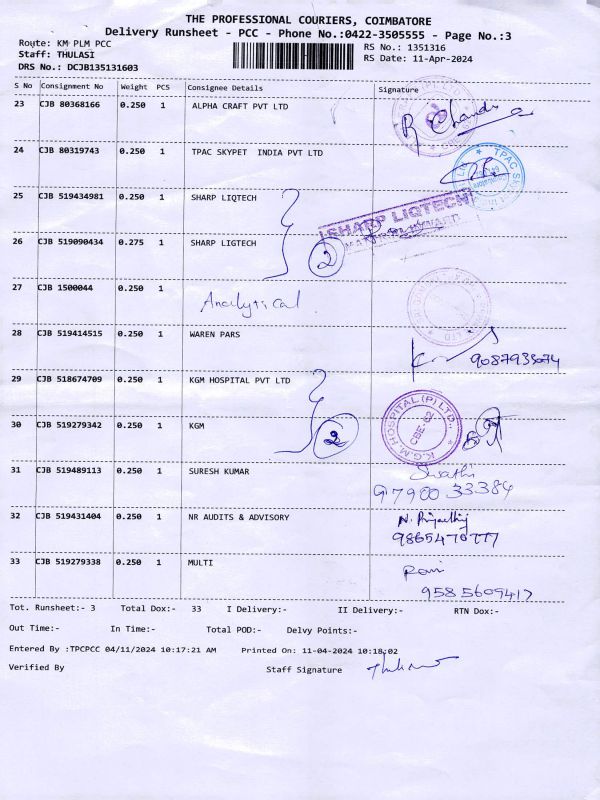 THE PROFESSIONAL COURIERS, COIMBATORE
Delivery Runsheet - PCC - Phone No.:0422-3505555 - Page No.:3
Route: KM PLM PCC
RS No.: 1351316
Staff: THULASI
RS Date: 11-Apr-2024
DRS No.: DCJB135131603
S No Consignment No Weight PCS Consignee Details Signature
23 CJB 80368166 0.250 1 ALPHA CRAFT PVT LTD R Chandra
24 CJB 80319743 0.250 1 TPAC SKYPET INDIA PVT LTD
25 CJB 519434981 0.250 1 SHARP LIQTECH
SHARP LIQTECH
26 CJB 519090434 0.275 1 SHARP LIGTECH 2
27 CJB 1500044 0.250 1
Analytical
28 CJB 519414515 0.250 1 WAREN PARS
9087933074
29 CJB 518674709 0.250 1 KGM HOSPITAL PVT LTD
K.G.M.HOSPITAL (P) LTD.
CBE-62
30 CJB 519279342 0.250 1 KGM 2
31 CJB 519489113 0.250 1 SURESH KUMAR Swathi
97900 33384
32 CJB 519431404 0.250 1 NR AUDITS & ADVISORY
9865470777
33 CJB 519279338 0.250 1 MULTI Ravi
9585609417
Tot. Runsheet:- 3 Total Dox:- 33 I Delivery:- II Delivery:- RTN Dox:-
Out Time:- In Time:- Total POD:- Delvy Points:-
Entered By :TPCPCC 04/11/2024 10:17:21 AM Printed On: 11-04-2024 10:18:02
Verified By Staff Signature